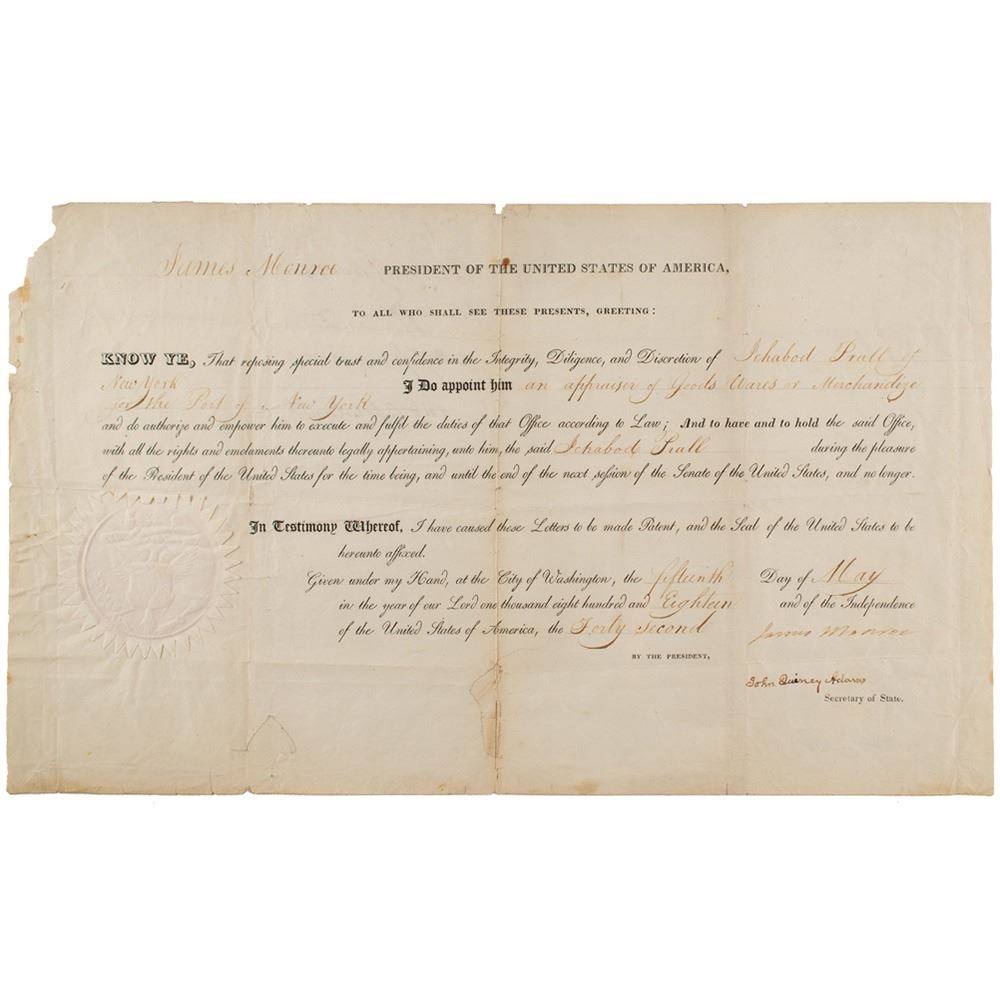 James Monroe PRESIDENT OF THE UNITED STATES OF AMERICA,
TO ALL WHO SHALL SEE THESE PRESENTS, GREETING:
KNOW YE, That reposing special trust and confidence in the Integrity, Diligence, and Discretion of Ichabod Prall of
New York I Do appoint him an appraiser of Goods Wares or Merchandize
for the Port of New York
and do authorize and empower him to execute and fulfil the duties of that Office according to Law; And to have and to hold the said Office,
with all the rights and emoluments thereunto legally appertaining, unto him, the said Ichabod Prall during the pleasure
of the President of the United States for the time being, and until the end of the next session of the Senate of the United States, and no longer.
In Testimony Whereof, I have caused these Letters to be made Patent, and the Seal of the United States to be
hereunto affixed.
Given under my Hand, at the City of Washington, the fifteenth Day of May
in the year of our Lord one thousand eight hundred and Eighteen and of the Independence
of the United States of America, the Forty Second James Monroe
BY THE PRESIDENT,
John Quincy Adams
Secretary of State.